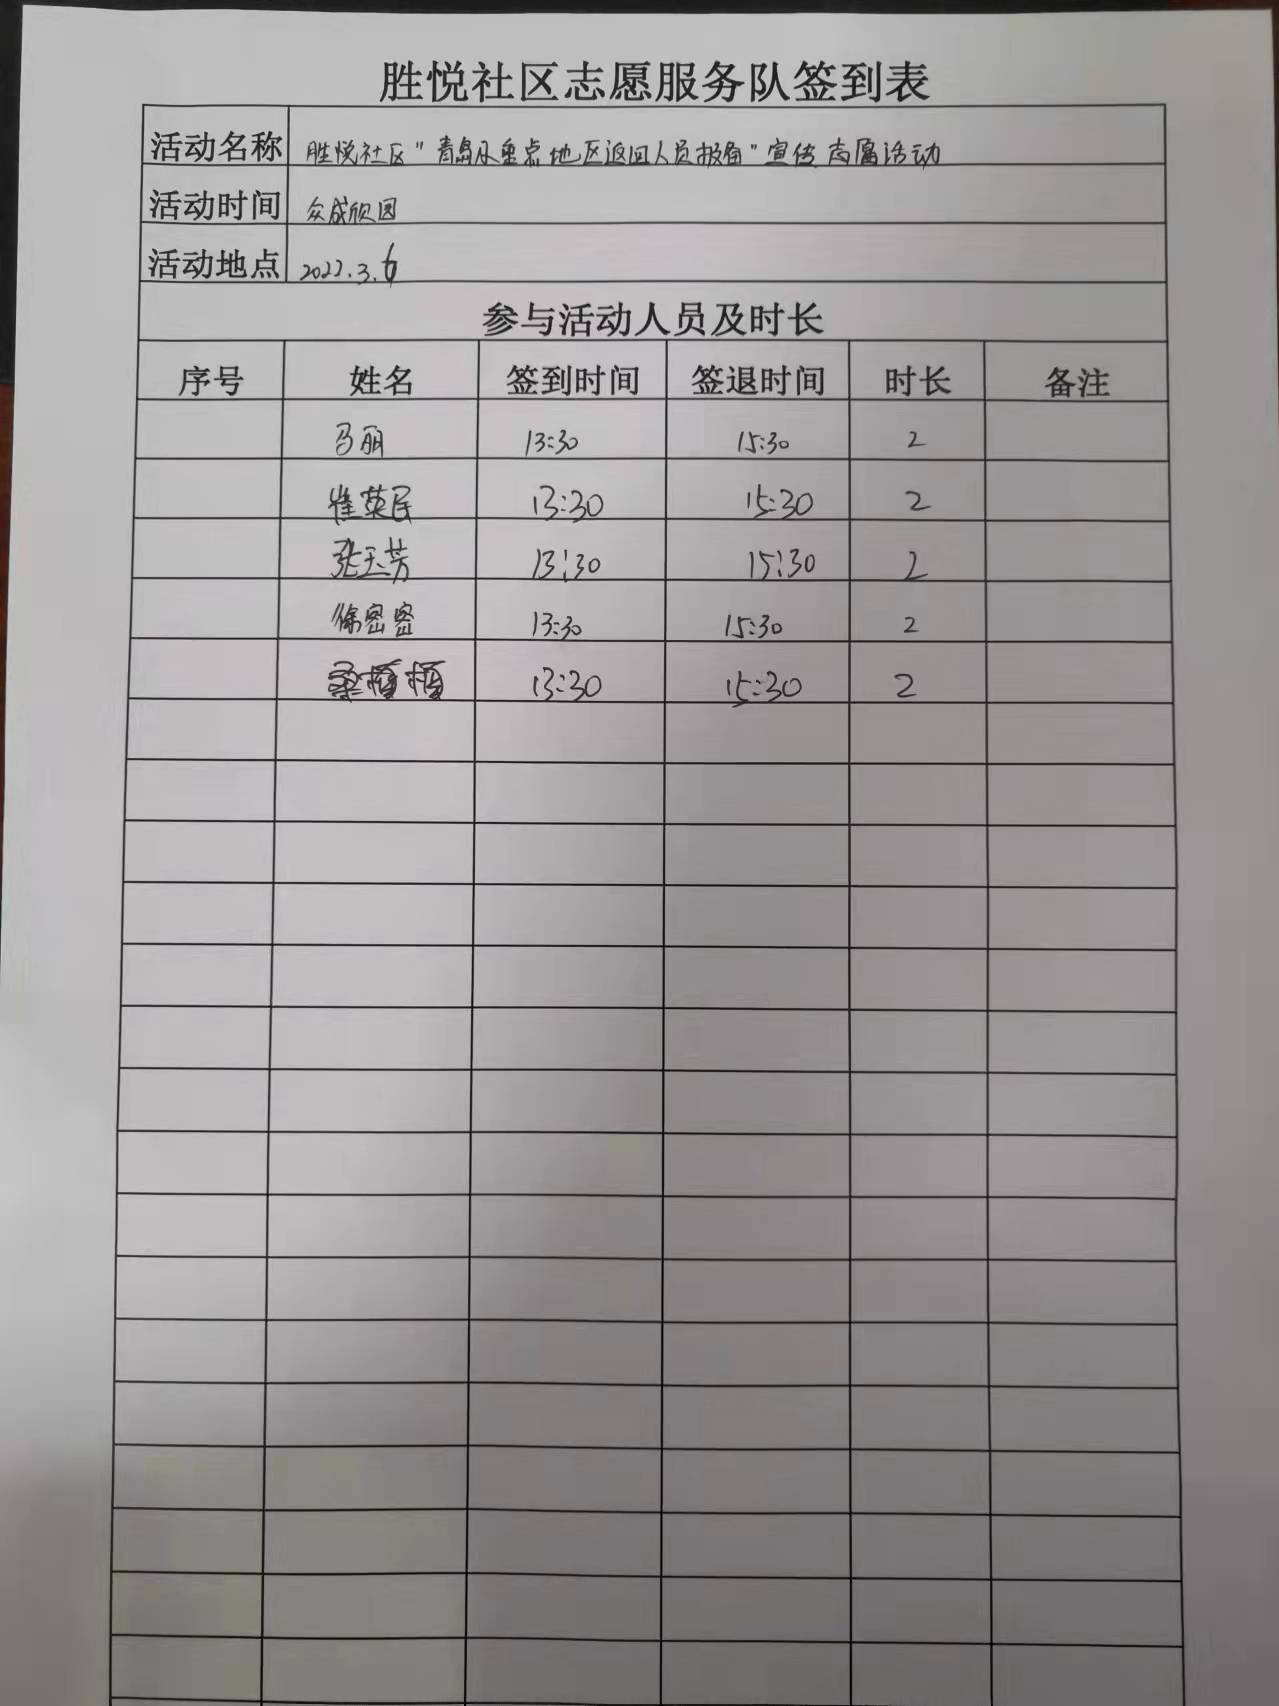 胜悦社区志愿服务队签到表
活动名称 胜悦社区"青岛及重点地区返回人员报备"宣传志愿活动
活动时间 众成欣园
活动地点 2022.3.6
参与活动人员及时长
序号 姓名 签到时间 签退时间 时长 备注
马丽 13:30 15:30 2
崔英民 13:30 15:30 2
张玉芳 13:30 15:30 2
徐密密 13:30 15:30 2
13:30 15:30 2